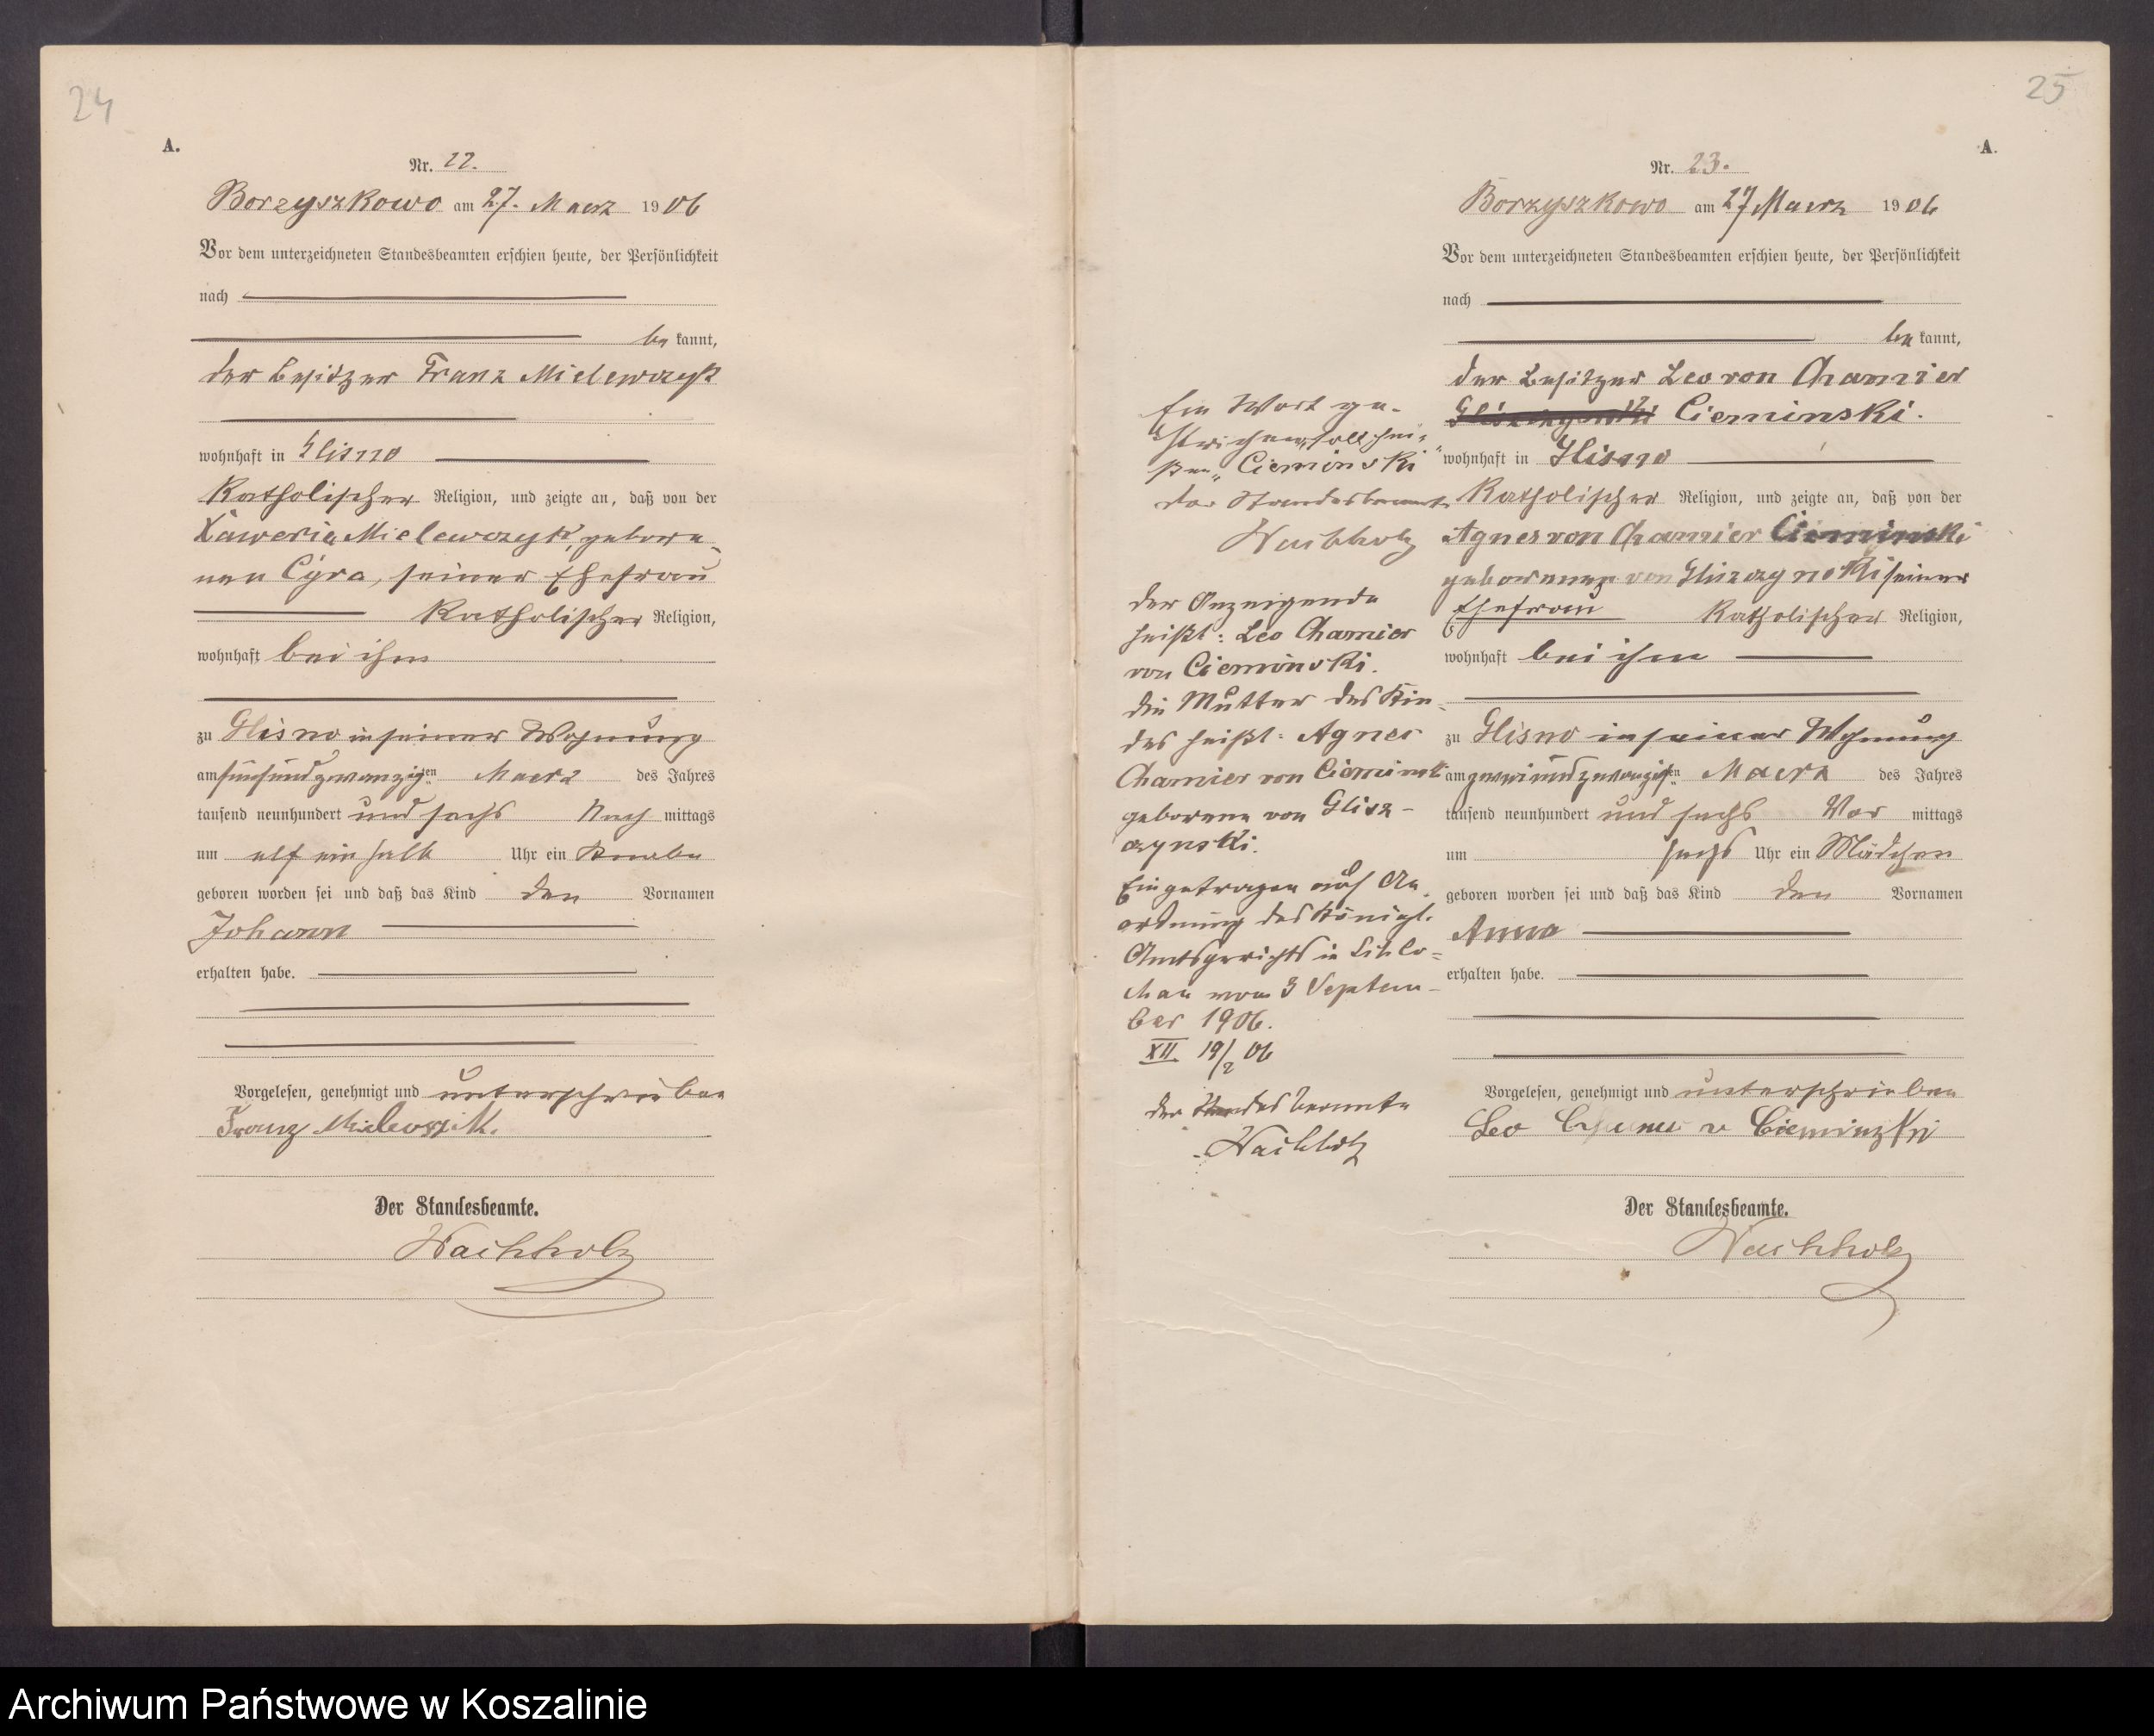 24
A.
Nr. 22.
Borzyszkowo am 27. Maerz 1906
Vor dem unterzeichneten Standesbeamten erschien heute, der Persönlichkeit
nach
be kannt,
der Besitzer Franz Mielewczyk
wohnhaft in Glisno
katholischer Religion, und zeigte an, daß von der
Xaweria Mielewczyk, gebore-
nen Cyra, seiner Ehefrau
katholischer Religion,
wohnhaft bei ihm
zu Glisno in seiner Wohnung
am fünfundzwanzigsten Maerz des Jahres
tausend neunhundert und sechs Nach mittags
um elf ein halb Uhr ein Knabe
geboren worden sei und daß das Kind den Vornamen
Johann
erhalten habe.
Vorgelesen, genehmigt und unterschrieben
Franz Mielewczik.
Der Standesbeamte.
Wachholz
25
A.
Nr. 23.
Borzyszkowo am 27 Maerz 1906
Vor dem unterzeichneten Standesbeamten erschien heute, der Persönlichkeit
nach
be kannt,
der Besitzer Leo von Chamier
Gliszczynski Cieminski.
wohnhaft in Glisno
katholischer Religion, und zeigte an, daß von der
Agnes von Chamier Cieminski
geborenen von Gliszczynski seiner
Ehefrau katholischer Religion,
wohnhaft bei ihm
zu Glisno in seiner Wohnung
am zweiundzwanzigsten Maerz des Jahres
tausend neunhundert und sechs Vor mittags
um sechs Uhr ein Mädchen
geboren worden sei und daß das Kind den Vornamen
Anna
erhalten habe.
Vorgelesen, genehmigt und unterschrieben
Leo v Cieminzki
Der Standesbeamte.
Wachholz
Ein Wort ge-
strichen, soll hei-
ßen „Cieminski"
der Standesbeamte
Wachholz
der Anzeigende
heißt: Leo Chamier
von Cieminski.
die Mutter des Kin-
des heißt: Agnes
Chamier von Cieminski
geborene von Glisz-
czynski.
Eingetragen auf An-
ordnung des Königl.
Amtsgerichts in Schlo-
chau vom 3 Septem-
ber 1906.
XII 19/2 06
der Standesbeamte
Wachholz
Archiwum Państwowe w Koszalinie